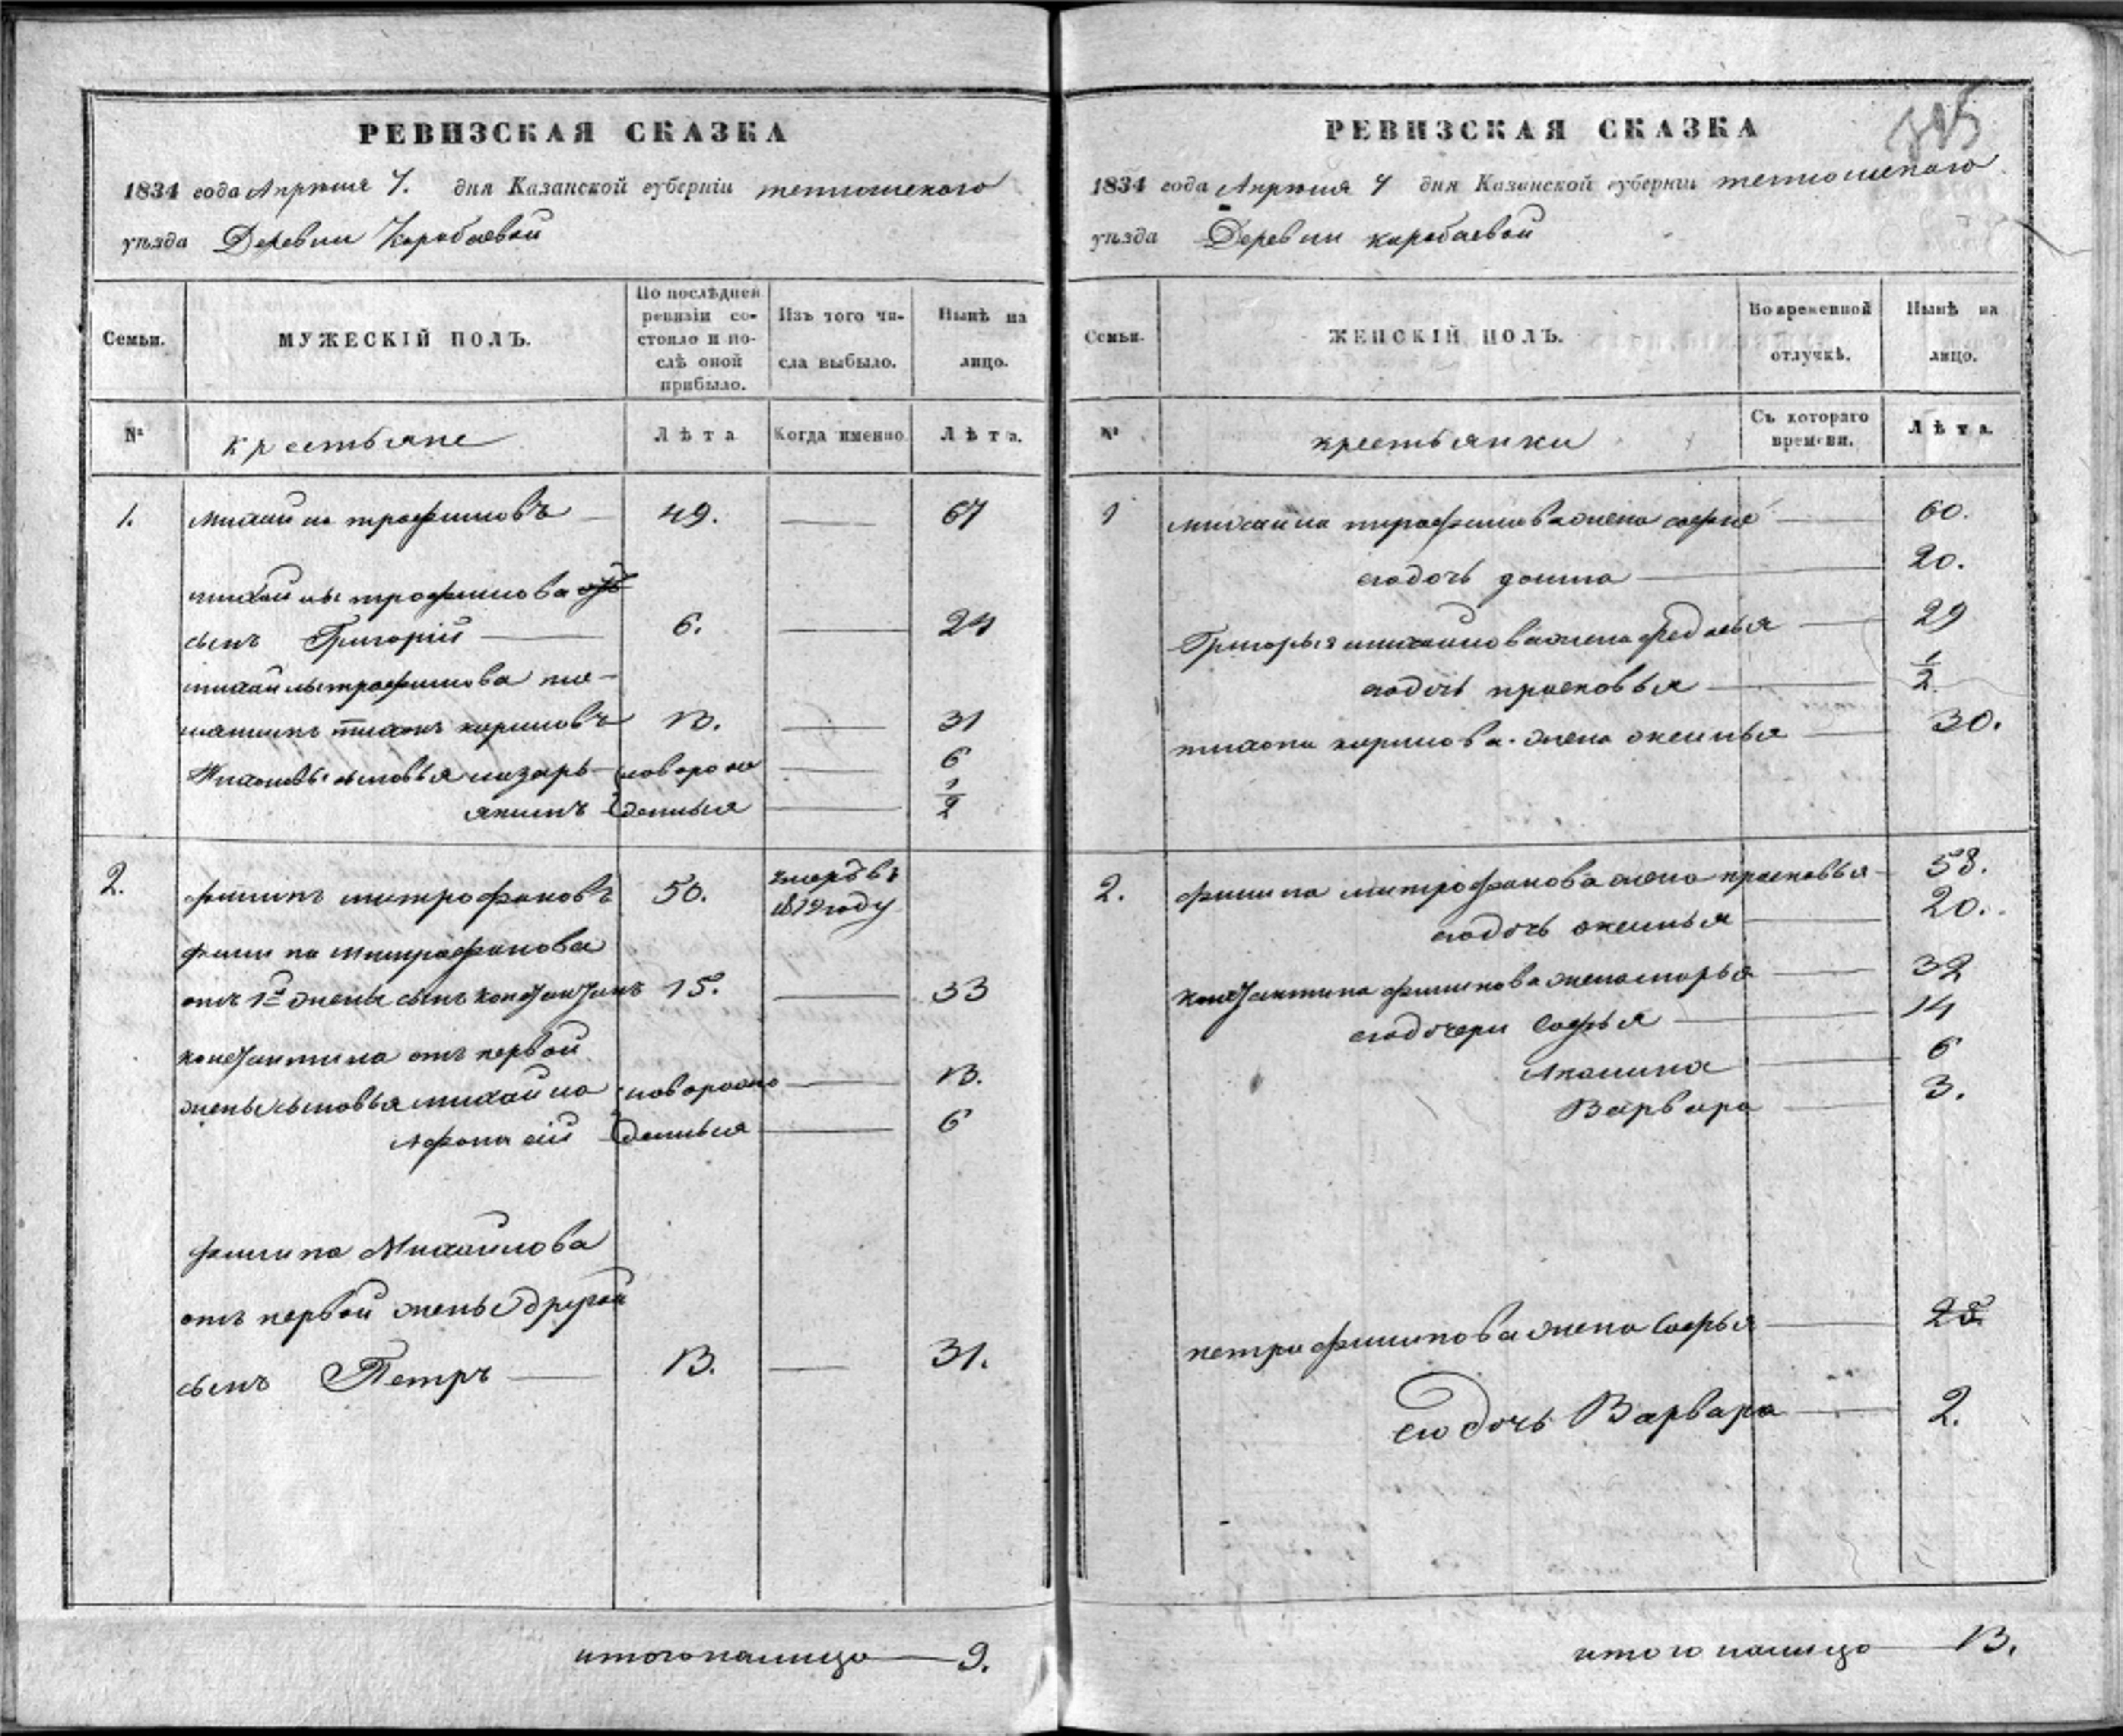 РЕВИЗСКАЯ СКАЗКА
1834 года Апреля 7. дня Казанской губерніи тетюшского
уѣзда Деревни Коробаевой
Семьи.
МУЖЕСКІЙ ПОЛЪ.
По послѣдней
ревизіи со-
стояло и по-
слѣ оной
прибыло.
Изъ того чи-
сла выбыло.
Нынѣ на
лицо.
№
крестьяне
Лѣта
Когда именно.
Лѣта.
1. михаила трофимовъ 49. 67
михайлы трофимова
сынъ Григорій 6. 24
михайлы трофимова пле-
мянникъ тихонъ 13. 31
Тихоновы сыновья лазарь новорож 6
якимъ денныя 1/2
2. филипъ митрофановъ 50. умеръ въ
1819 году
филипа митрофанова
отъ 1й жены сынъ константинъ 15. 33
константина отъ первой
жены сыновья михайла новорож 13.
Афонасій денныя 6
филипа Михайлова
отъ первой жены другой
сынъ Петръ 13. 31.
итого налицо 9.
РЕВИЗСКАЯ СКАЗКА
1834 года Апреля 7 дня Казанской губерніи тетюшского
уѣзда Деревни коробаевой
Семьи.
ЖЕНСКІЙ ПОЛЪ.
Во временной
отлучкѣ.
Нынѣ на
лицо.
№
крестьянки
Съ котораго
времени.
Лѣта.
1 михаила трофимова жена софья 60.
ея дочь 20.
Григорья михайлова жена федосья 29
ея дочь прасковья 1/2
тихона жена оксинья 30.
2. филипа митрофанова жена прасковья 58.
ея дочь оксинья 20.
константина филипова жена марья 32
ея дочери Софья 14
Акилина 6
Варвара 3.
петра филипова жена Софья 25.
ея дочь Варвара 2.
итого налицо 13.